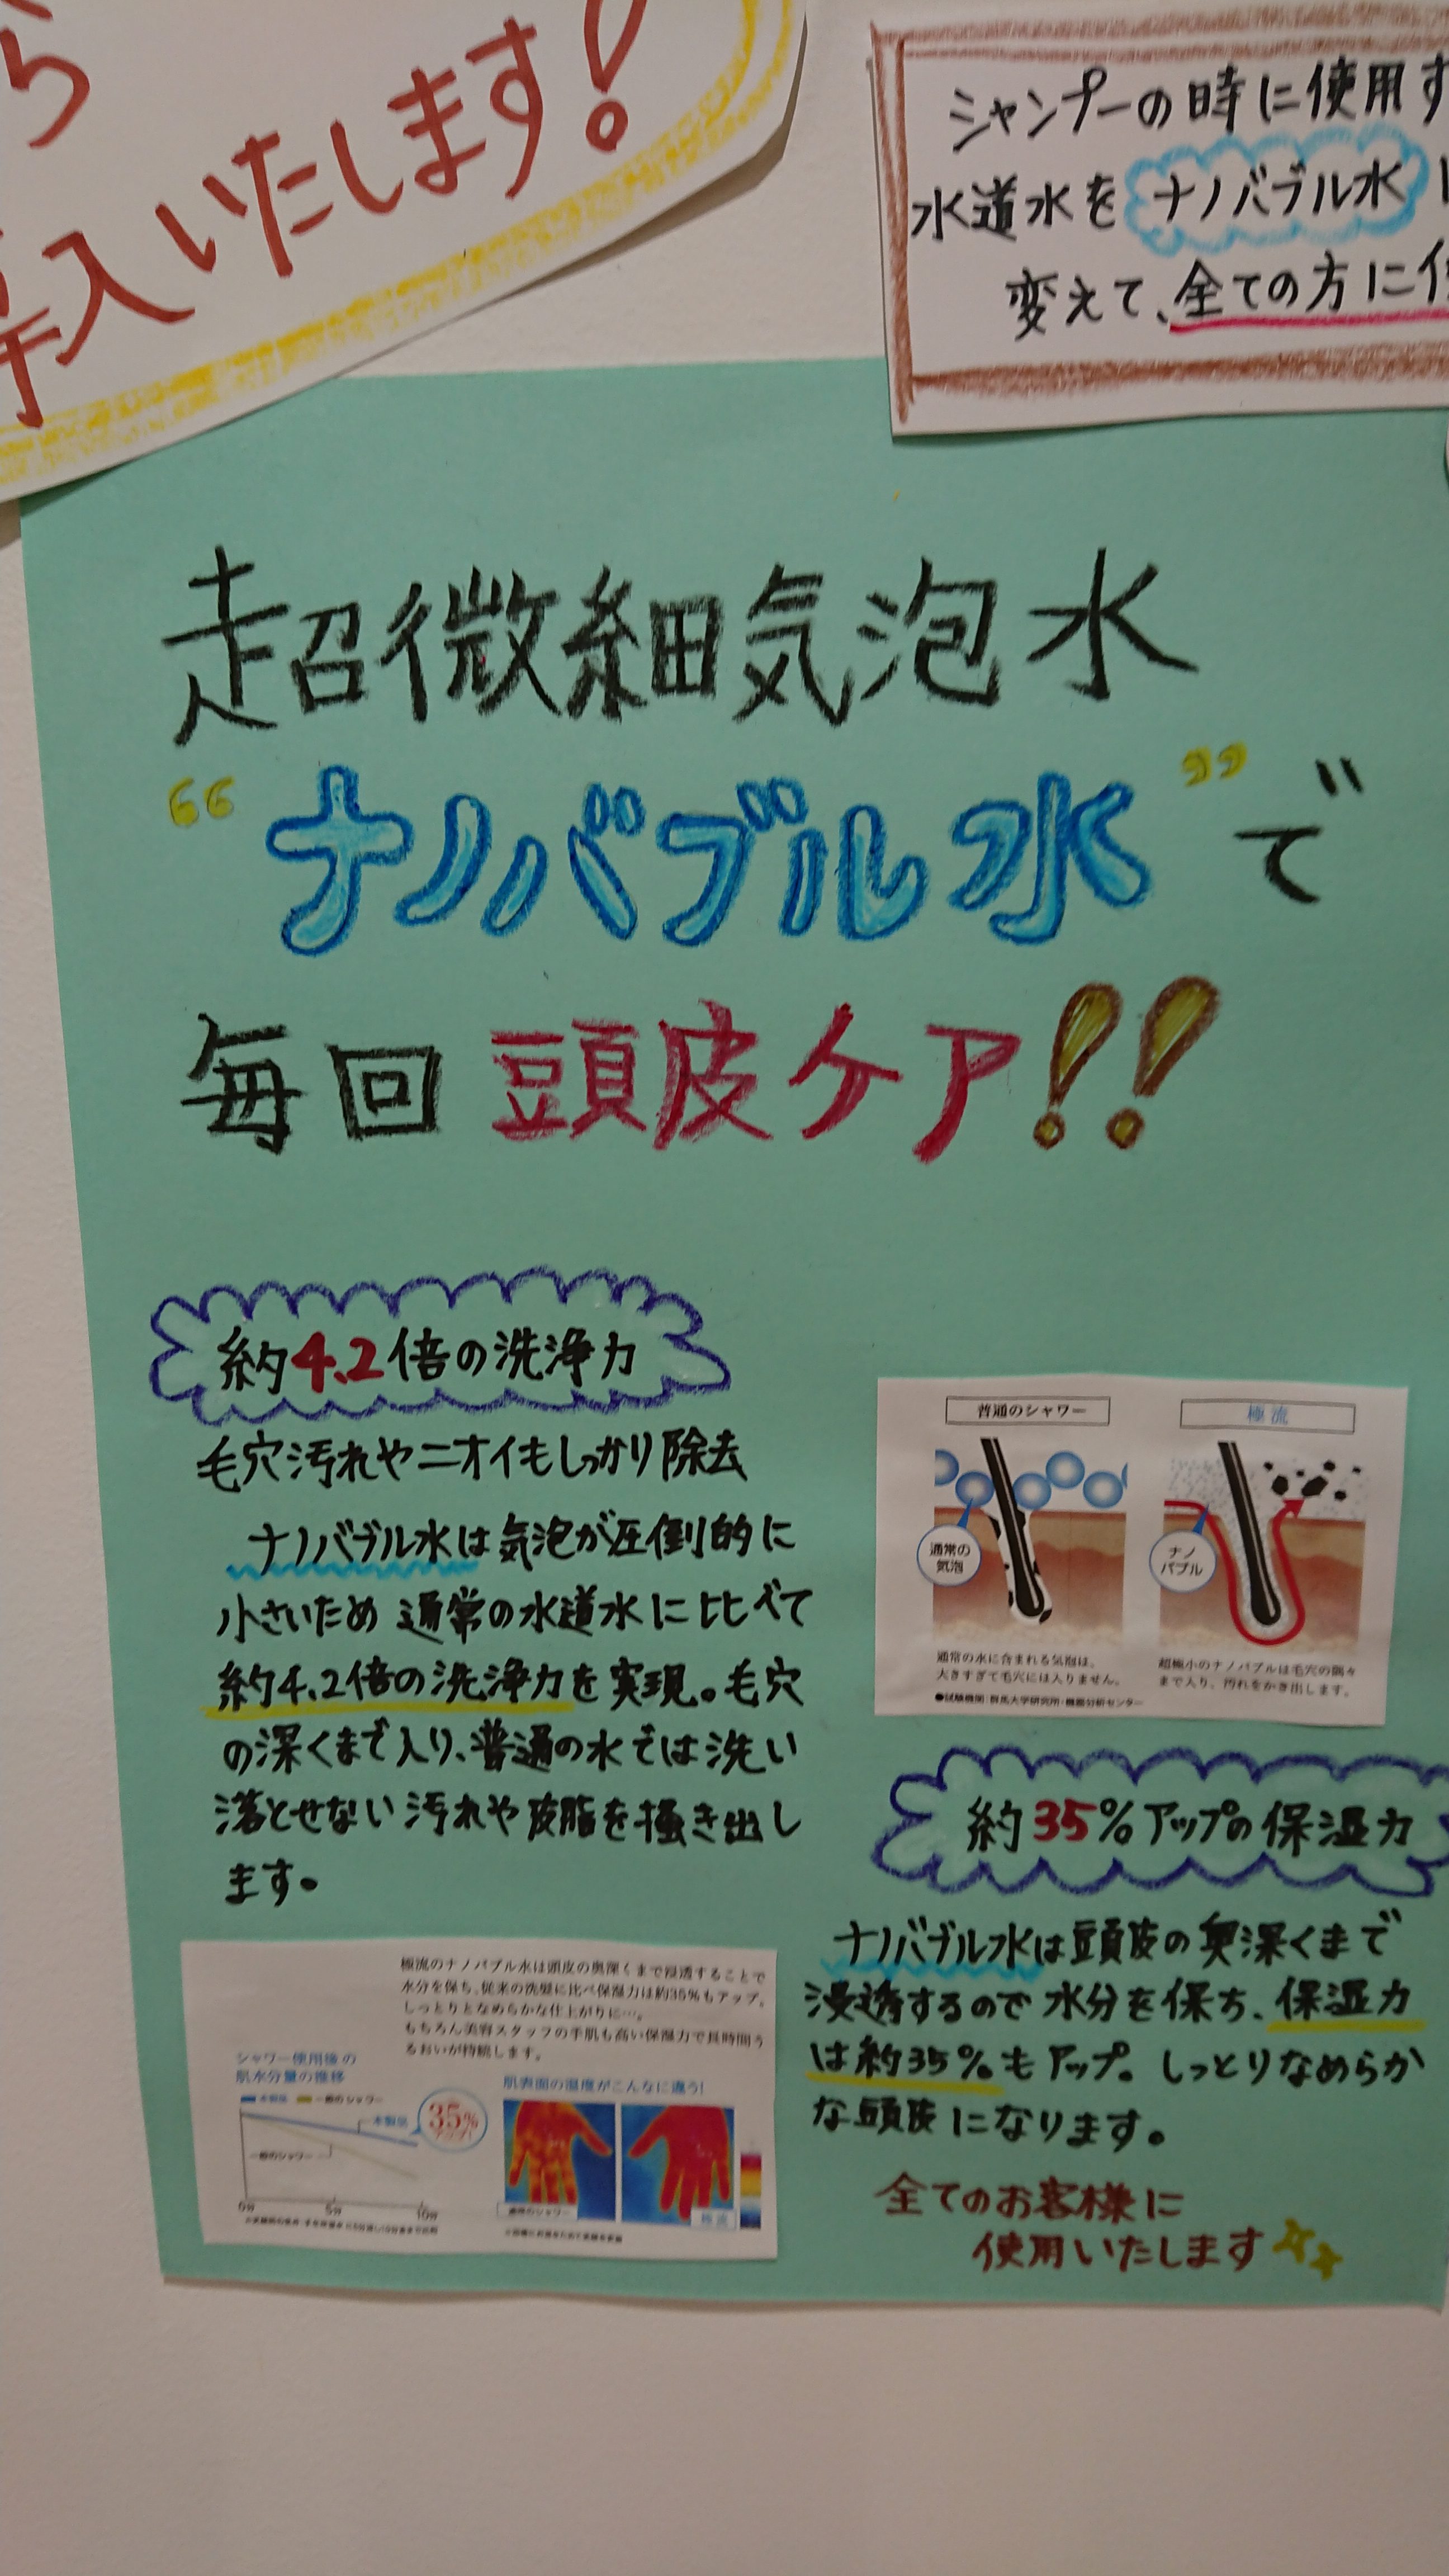 ら
導入いたします!
シャンプーの時に使用す
水道水をナノバブル水に
変えて、全ての方に使
超微細気泡水
“ナノバブル水”で
毎回頭皮ケア!!
約4.2倍の洗浄力
毛穴汚れやニオイもしっかり除去
ナノバブル水は気泡が圧倒的に
小さいため通常の水道水に比べて
約4.2倍の洗浄力を実現。毛穴
の深くまで入り、普通の水では洗い
落とせない汚れや皮脂を掻き出し
ます。
普通のシャワー
極流
通常の
気泡
ナノ
バブル
通常の水に含まれる気泡は、
大きすぎて毛穴には入りません。
超極小のナノバブルは毛穴の隅々
まで入り、汚れをかき出します。
●試験機関:群馬大学研究所・機器分析センター
約35%アップの保湿力
ナノバブル水は頭皮の奥深くまで
浸透するので水分を保ち、保湿力
は約35%もアップ。しっとりなめらか
な頭皮になります。
全てのお客様に
使用いたします
極流のナノバブル水は頭皮の奥深くまで浸透することで
水分を保ち、従来の洗髪に比べ保湿力は約35%もアップ。
しっとりとなめらかな仕上がりに…。
もちろん美容スタッフの手肌も高い保湿力で長時間う
るおいが持続します。
シャワー使用後の
肌水分量の推移
本製品 一般のシャワー
本製品
35%
アップ!
一般のシャワー
0分 5分 10分
肌表面の温度がこんなに違う!
通常のシャワー
極流